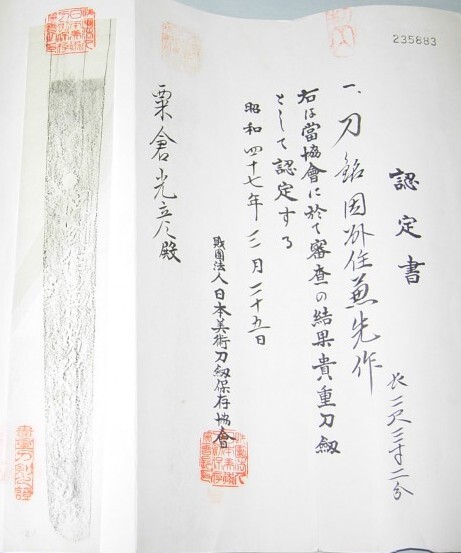 235883
認定書
一、刀 銘 因州住兼先作
長二尺三寸二分
右は當協會に於て審査の結果貴重刀劔
として認定する
昭和四十七年 月二十五日
財團法人日本美術刀劔保存協會
粟倉光 殿